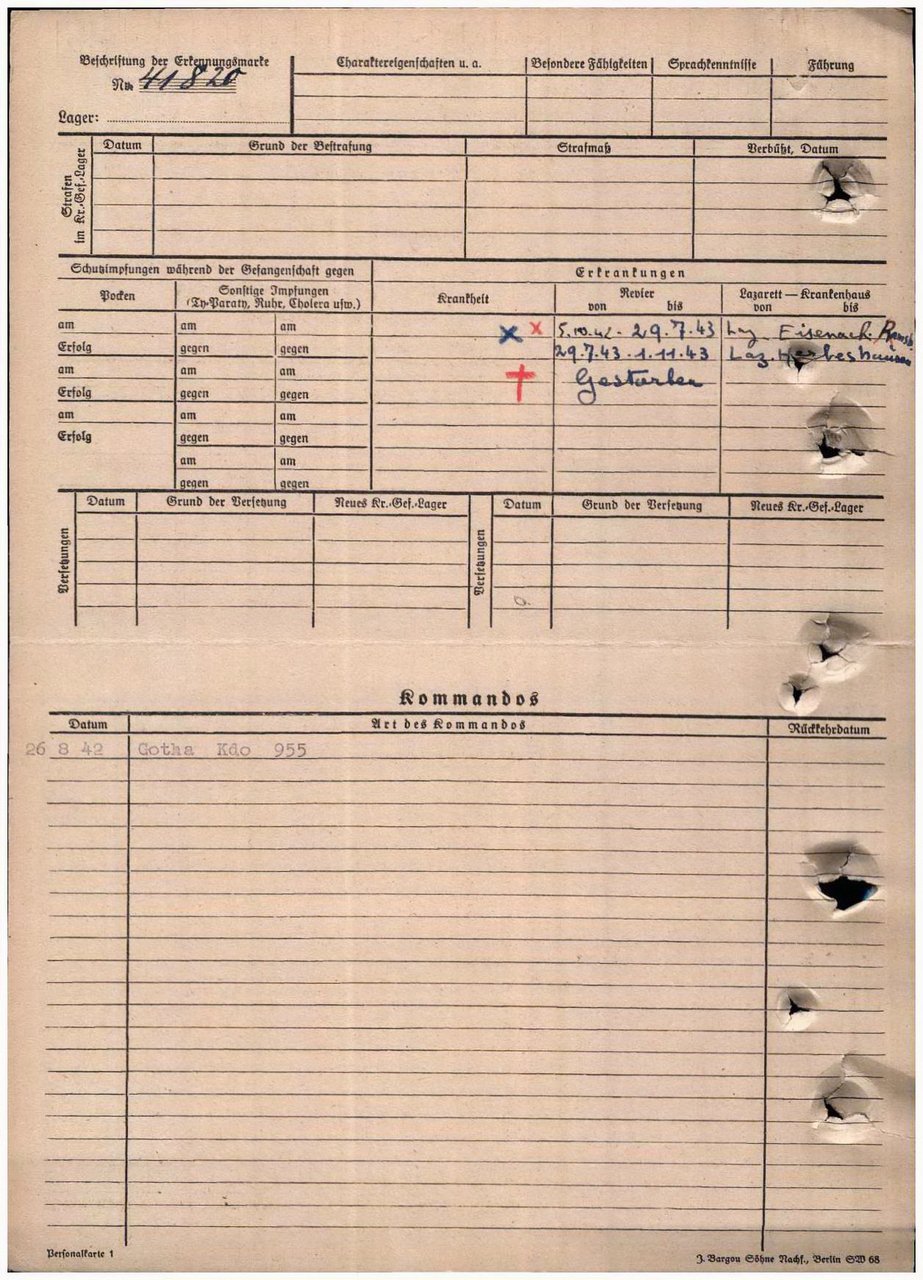 Beschriftung der Erkennungsmarke
Nr. 41820
Lager:
Charaktereigenschaften u. a. Besondere Fähigkeiten Sprachkenntnisse Führung
Strafen im Kr.-Gef.-Lager
Datum Grund der Bestrafung Strafmaß Verbüßt, Datum
Schutzimpfungen während der Gefangenschaft gegen Erkrankungen
Pocken Sonstige Impfungen (Ty-Paraty, Ruhr, Cholera usw.) Krankheit Revier von bis Lazarett — Krankenhaus von bis
am am am x x 5.10.42 - 29.7.43 Laz. Eisenach
Erfolg gegen gegen 29.7.43 - 1.11.43 Laz.
am am am Gestorben
Erfolg gegen gegen
am am am
Erfolg gegen gegen
am am
gegen gegen
Versetzungen
Datum Grund der Versetzung Neues Kr.-Gef.-Lager
Versetzungen
Datum Grund der Versetzung Neues Kr.-Gef.-Lager
Kommandos
Datum Art des Kommandos Rückkehrdatum
26 8 42 Gotha Kdo 955
Personalkarte 1
J. Bargou Söhne Nachf., Berlin SW 68